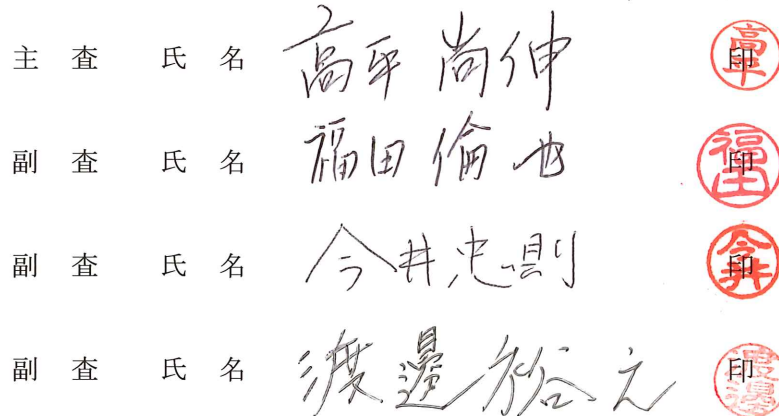 主査 氏名 高平尚伸 印
副査 氏名 福田倫也 印
副査 氏名 今井忠則 印
副査 氏名 渡邊裕之 印